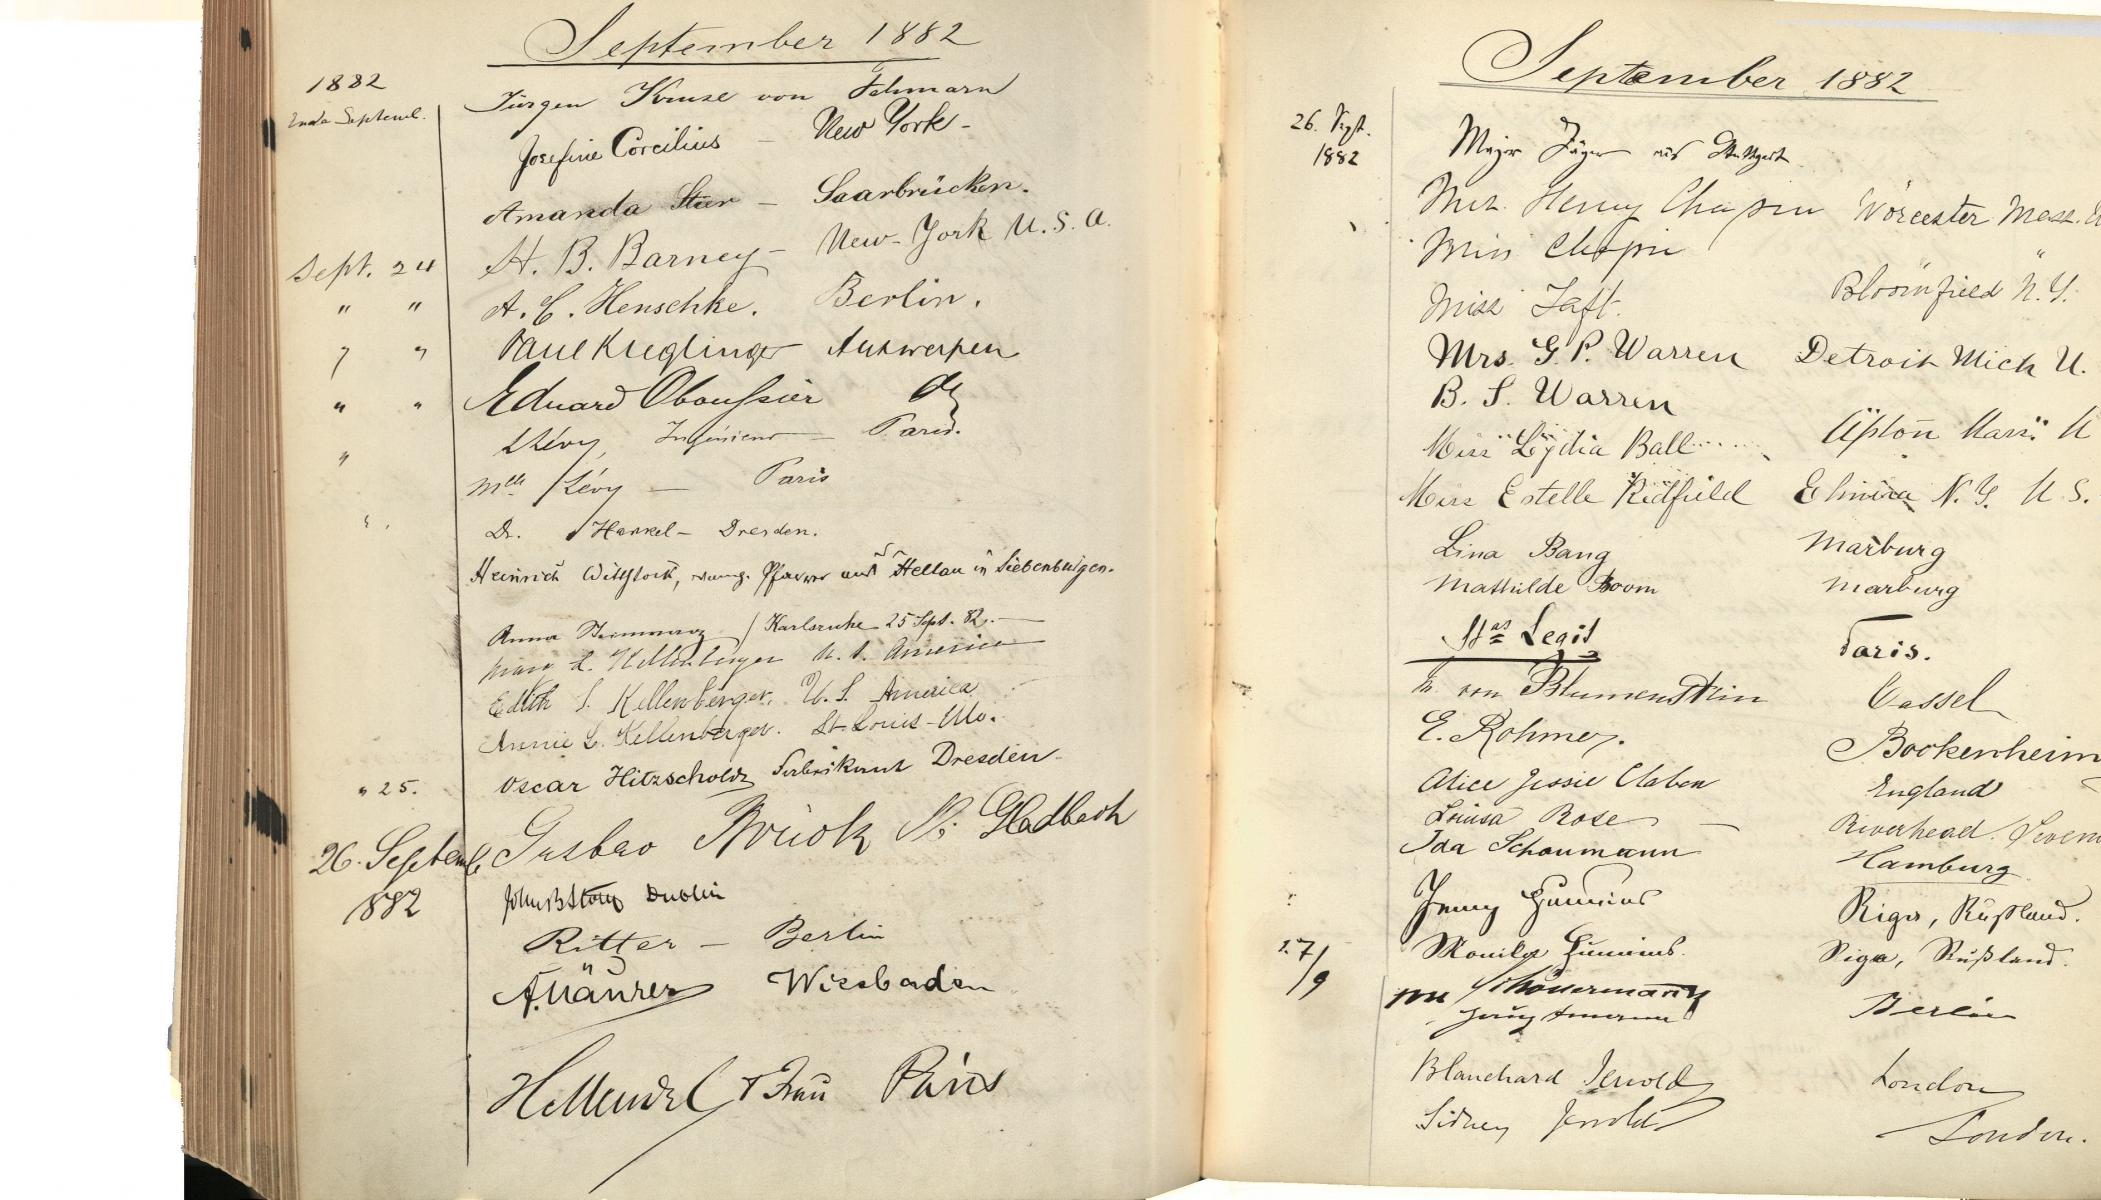 September 1882
1882
Ende Septemb.
Jürgen Kruse von Fehmarn
Josefine Corcilius – New York –
Amanda Stier – Saarbrücken.
Sept. 24 H. B. Barney – New-York U.S.A.
" " A. C. Henschke. Berlin.
" " Paul Kreglinger Antwerpen
" " Eduard Oboussier do
" Lévy, Ingénieur – Paris.
Mlle Lévy – Paris
Dr. Henkel – Dresden.
Heinrich Wittstock, evang. Pfarrer aus Heltau in Siebenbürgen.
Anna / Karlsruhe 25 Sept. 82. –
L. Kellenberger U. S. America
Edith S. Kellenberger. U. S. America
Annie L. Kellenberger. St. Louis – Mo.
" 25. Oscar Hitzschold Fabrikant Dresden –
26. Septemb Gustav Brück M. Gladbach
1882
Dublin
Ritter – Berlin
A. Maurer Wiesbaden
Frau Paris
September 1882
26. Sept.
1882
Major Jäger aus Stuttgart
Mrs. Henry Chapin Worcester Mass.
Miss Chapin " "
Miss Taft. Bloomfield N.Y.
Mrs. G. P. Warren Detroit Mich U.
B. S. Warren
Miss Lydia Ball Upton Mass. U
Miss Estelle Redfield Elmira N.Y. U.S.
Lina Bang Marburg
Mathilde Boom Marburg
Legit Paris.
von Blumenstein Cassel
E. Rohmer. Bockenheim
Alice Jessie England
Louisa Rose – Riverhead.
Ida Schaumann Hamburg
Jenny Riga, Rußland.
27/9
Monika Riga, Rußland.
Berlin
Blanchard Jerrold London
Sidney Jerrold London.